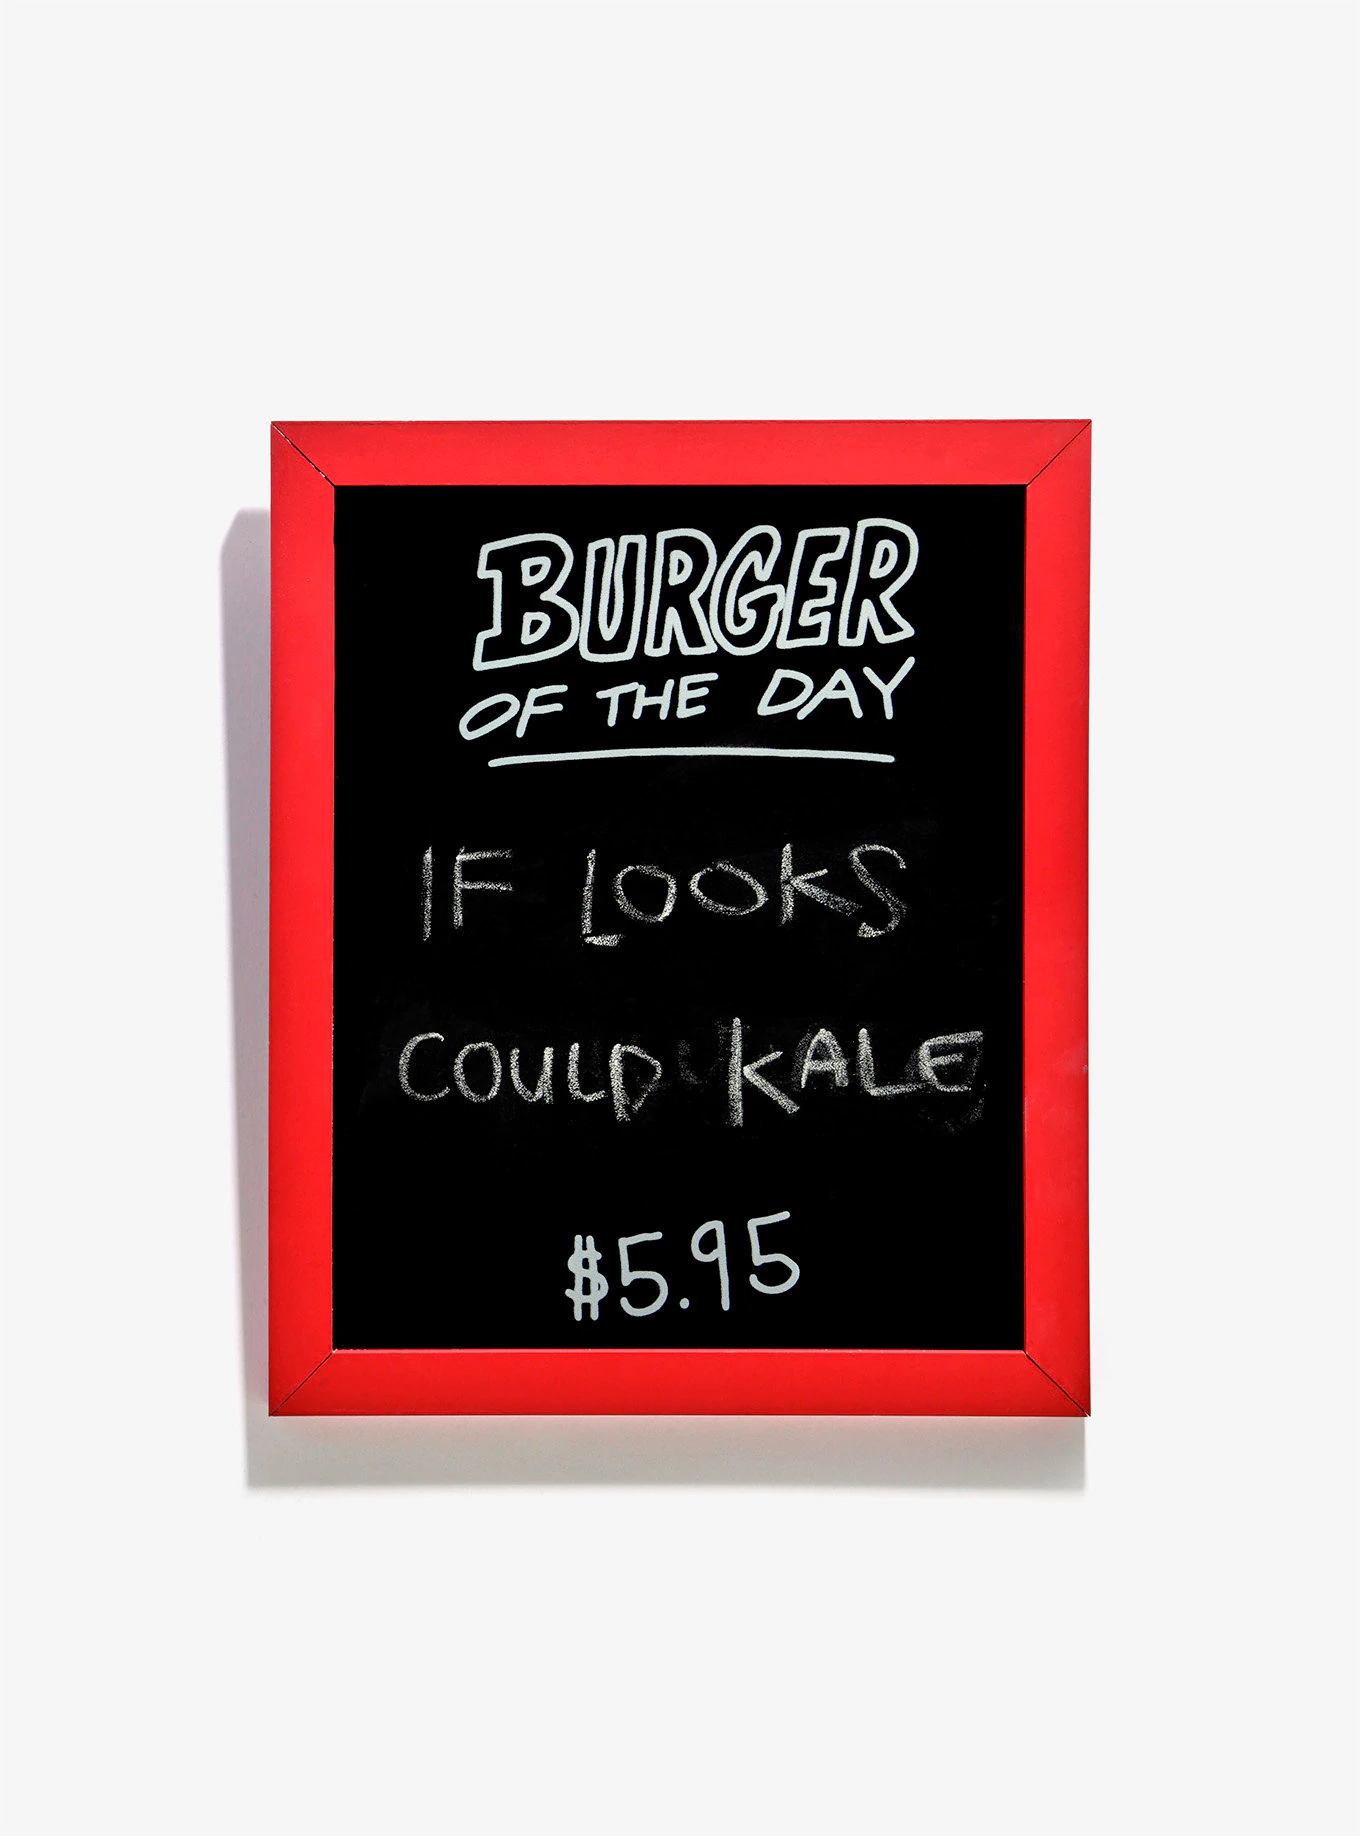 BURGER
OF THE DAY
IF LOOKS
COULD KALE
$5.95